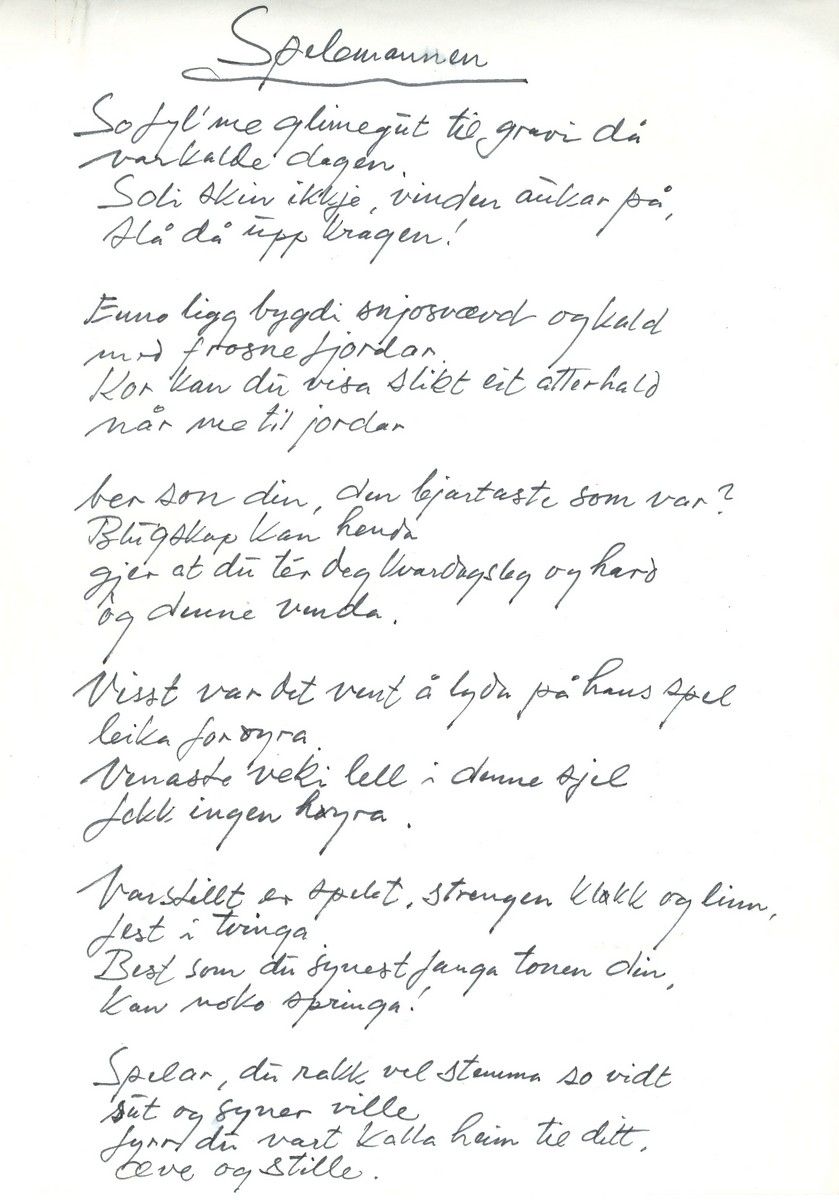 Spelemannen
So fyl' me glimegut til gravi då
varkalde dagen.
Soli skin ikkje, vinden aukar på,
slå då upp kragen!
Enno ligg bygdi snjosvævd og kald
med frosne fjordar.
Kor kan du visa slikt eit atterhald
når me til jordar
ber son din, den bjartaste som var?
Blugskap kan henda
gjer at du tér deg kvardagsleg og hard
òg denne venda.
Visst var det vent å lyda på hans spel
leika for oyra.
Venaste veki lell i denne sjel
fekk ingen høyra.
Varstillt er spelet, strengen kløkk og linn,
fest i tvinga
Best som du synest fanga tonen din,
kan noko springa!
Spelar, du rakk vel stemma so vidt
sut og syner ville
fyrr du vart kalla heim til ditt,
æve og stille.